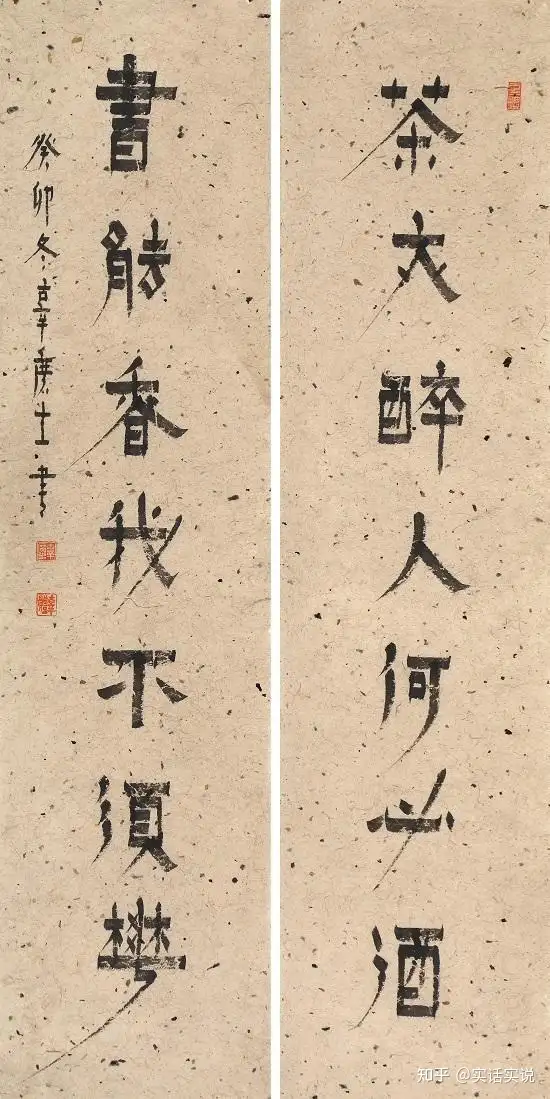 茶亦醉人何必酒
書能香我不須華
癸卯冬士書
知乎 @实话实说